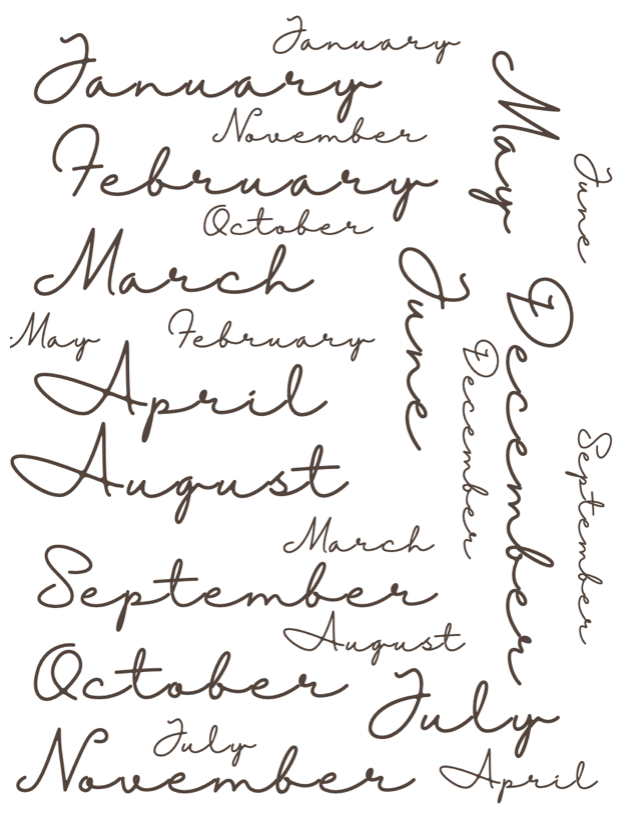 January
January
November
February
October
March
May
February
April
August
March
September
August
October
July
July
November
April
May
June
June
December
December
September